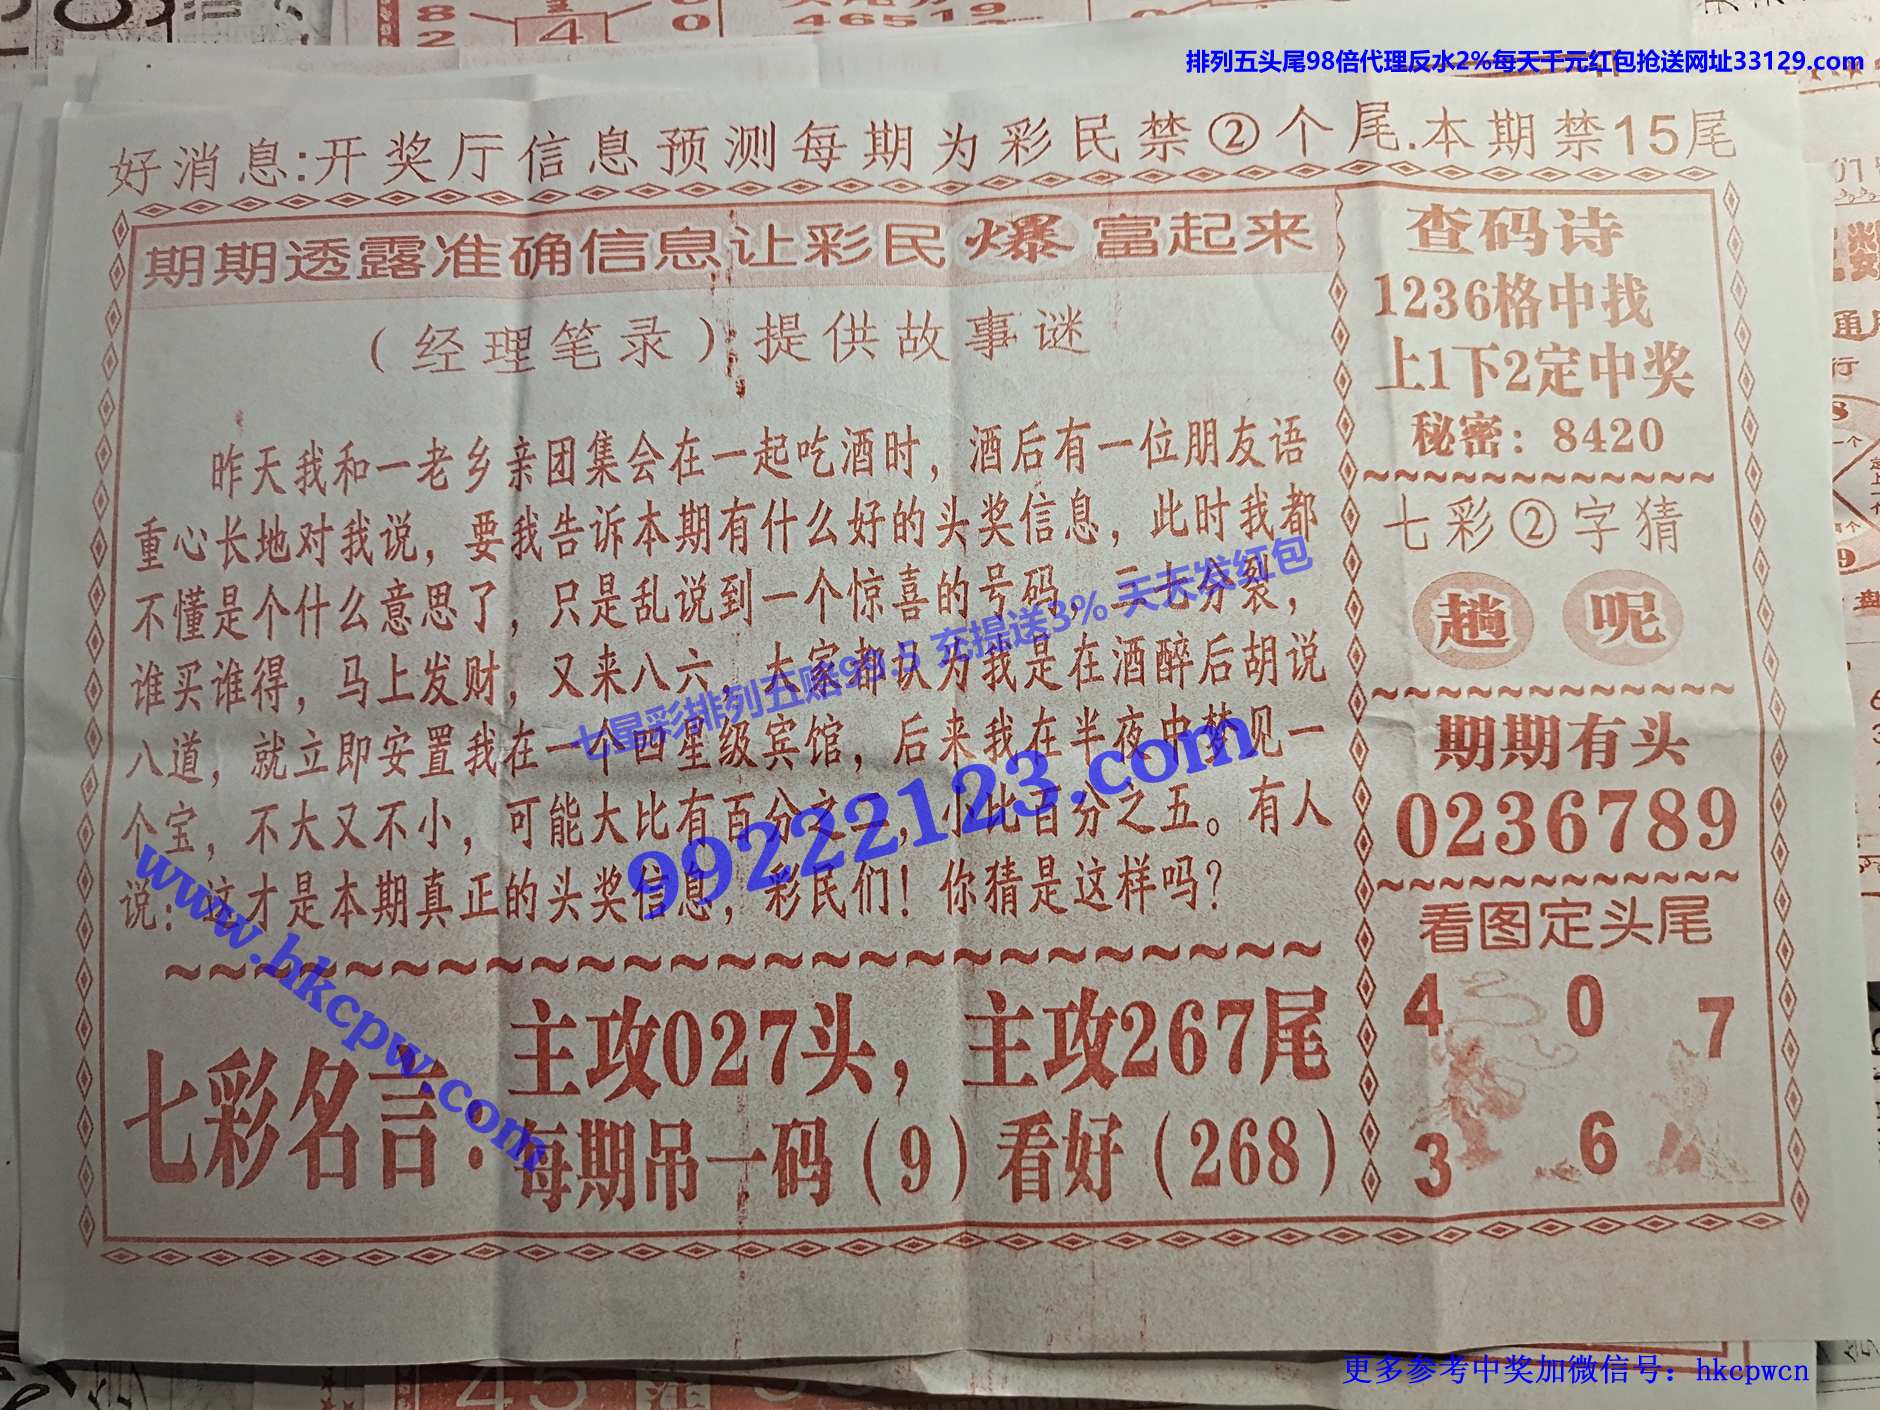 排列五头尾98倍代理反水2%每天千元红包抢送网址33129.com
46519
好消息:开奖厅信息预测每期为彩民禁②个尾.本期禁15尾
期期透露准确信息让彩民爆富起来
（经理笔录）提供故事谜
昨天我和一老乡亲团集会在一起吃酒时，酒后有一位朋友语
重心长地对我说，要我告诉本期有什么好的头奖信息，此时我都
不懂是个什么意思了，只是乱说到一个惊喜的号码，三七分裂，
谁买谁得，马上发财，又来八六，大家都认为我是在酒醉后胡说
八道，就立即安置我在一个四星级宾馆，后来我在半夜中梦见一
个宝，不大又不小，可能大比有百分之二，小比百分之五。有人
说：这才是本期真正的头奖信息，彩民们！你猜是这样吗？
七彩名言：
主攻027头，主攻267尾
每期吊一码（9）看好（268）
查码诗
1236格中找
上1下2定中奖
秘密：8420
七彩②字猜
趟 呢
期期有头
0236789
看图定头尾
4 0 7
3 6
七星彩排列五赔98.5 充提送3% 天天发红包
99222123.com
www.hkcpw.com
更多参考中奖加微信号：hkcpwcn